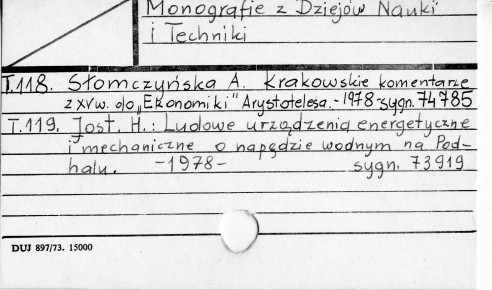 Monografie z Dziejów Nauki
i Techniki
T.118. Słomczyńska A. Krakowskie komentarze
z XV w. do „Ekonomiki" Arystotelesa. - 1978 - sygn. 74785
T.119. Jost. H.: Ludowe urządzenia energetyczne
i mechaniczne o napędzie wodnym na Pod-
halu. -1978- sygn. 73919
DUJ 897/73. 15000